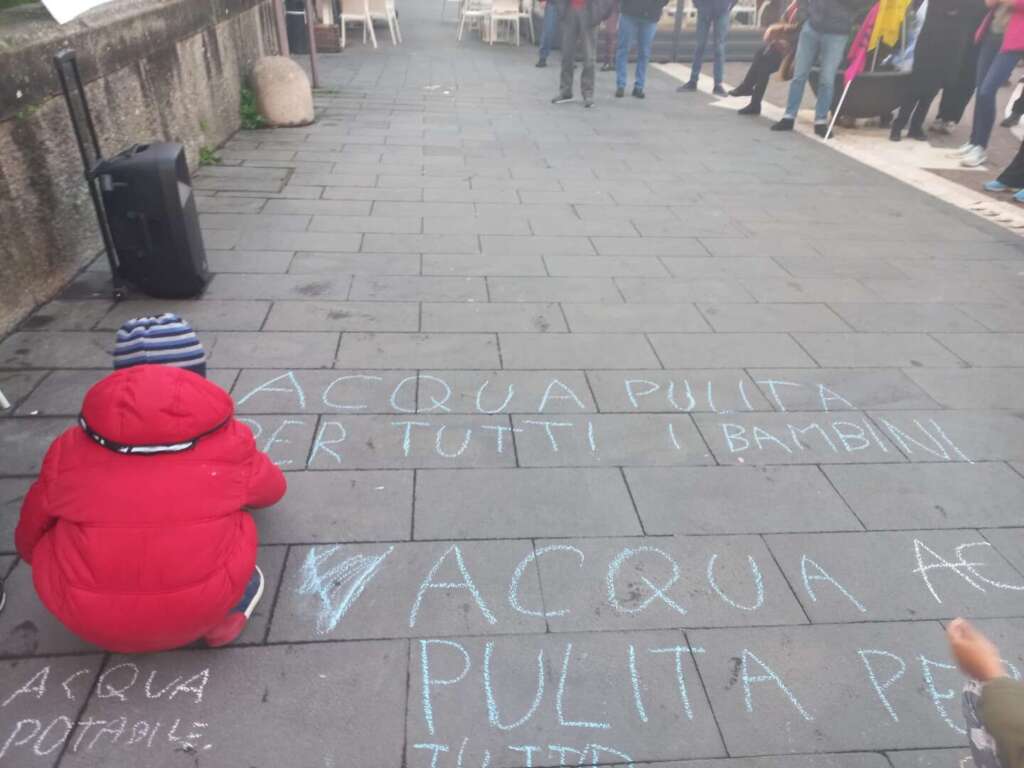 ACQUA PULITA
PER TUTTI I BAMBINI
ACQUA
PULITA PE
ACQUA
POTABILE